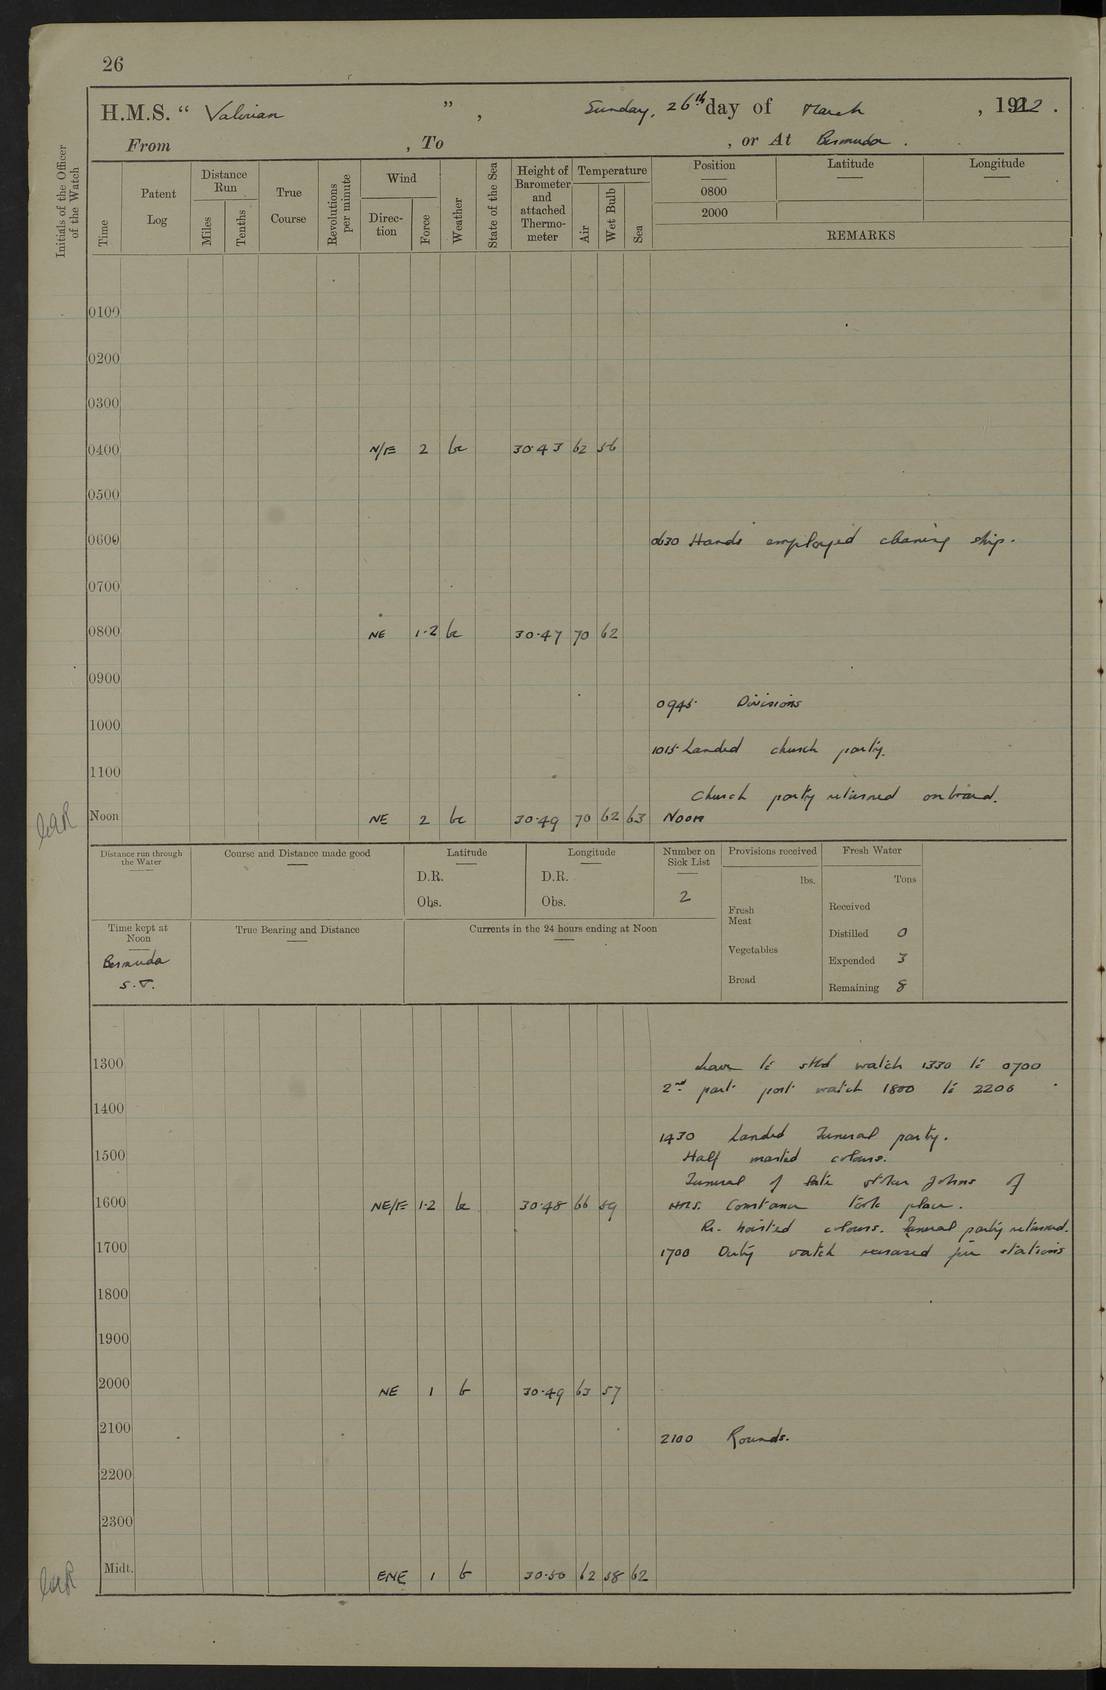 26
H.M.S. " Valerian " , Sunday, 26th day of March , 1922 .
From , To , or At Bermuda .
Initials of the Officer of the Watch
Time
Patent Log
Distance Run
Miles
Tenths
True Course
Revolutions per minute
Wind
Direc-tion
Force
Weather
State of the Sea
Height of Barometer and attached Thermo-meter
Temperature
Air
Wet Bulb
Sea
Position Latitude Longitude
0800
2000
REMARKS
0100
0200
0300
0400 N/E 2 bc 30.43 62 56
0500
0600 0630 Hands employed cleaning ship.
0700
0800 NE 1-2 bc 30.47 70 62
0900
0945 Divisions
1000
1015 Landed church party.
1100
Church party returned onboard.
Noon NE 2 bc 30.49 70 62 63 Noon
Distance run through the Water
Course and Distance made good
Latitude
D.R.
Obs.
Longitude
D.R.
Obs.
Number on Sick List
2
Provisions received
lbs.
Fresh Meat
Vegetables
Bread
Fresh Water
Tons
Received
Distilled 0
Expended 3
Remaining 8
Time kept at Noon
Bermuda
S.T.
True Bearing and Distance
Currents in the 24 hours ending at Noon
1300 Leave to stbd watch 1330 to 0700
2nd part port watch 1800 to 2200
1400
1430 Landed Funeral party.
1500 Half masted colours.
Funeral of late stoker Johns of
1600 NE/E 1-2 bc 30.48 66 59 HMS. Constance took place.
Re-hoisted colours. Funeral party returned.
1700 1700 Duty watch exercised fire stations
1800
1900
2000 NE 1 b 30.49 63 57
2100 2100 Rounds.
2200
2300
Midt. ENE 1 b 30.50 62 58 62